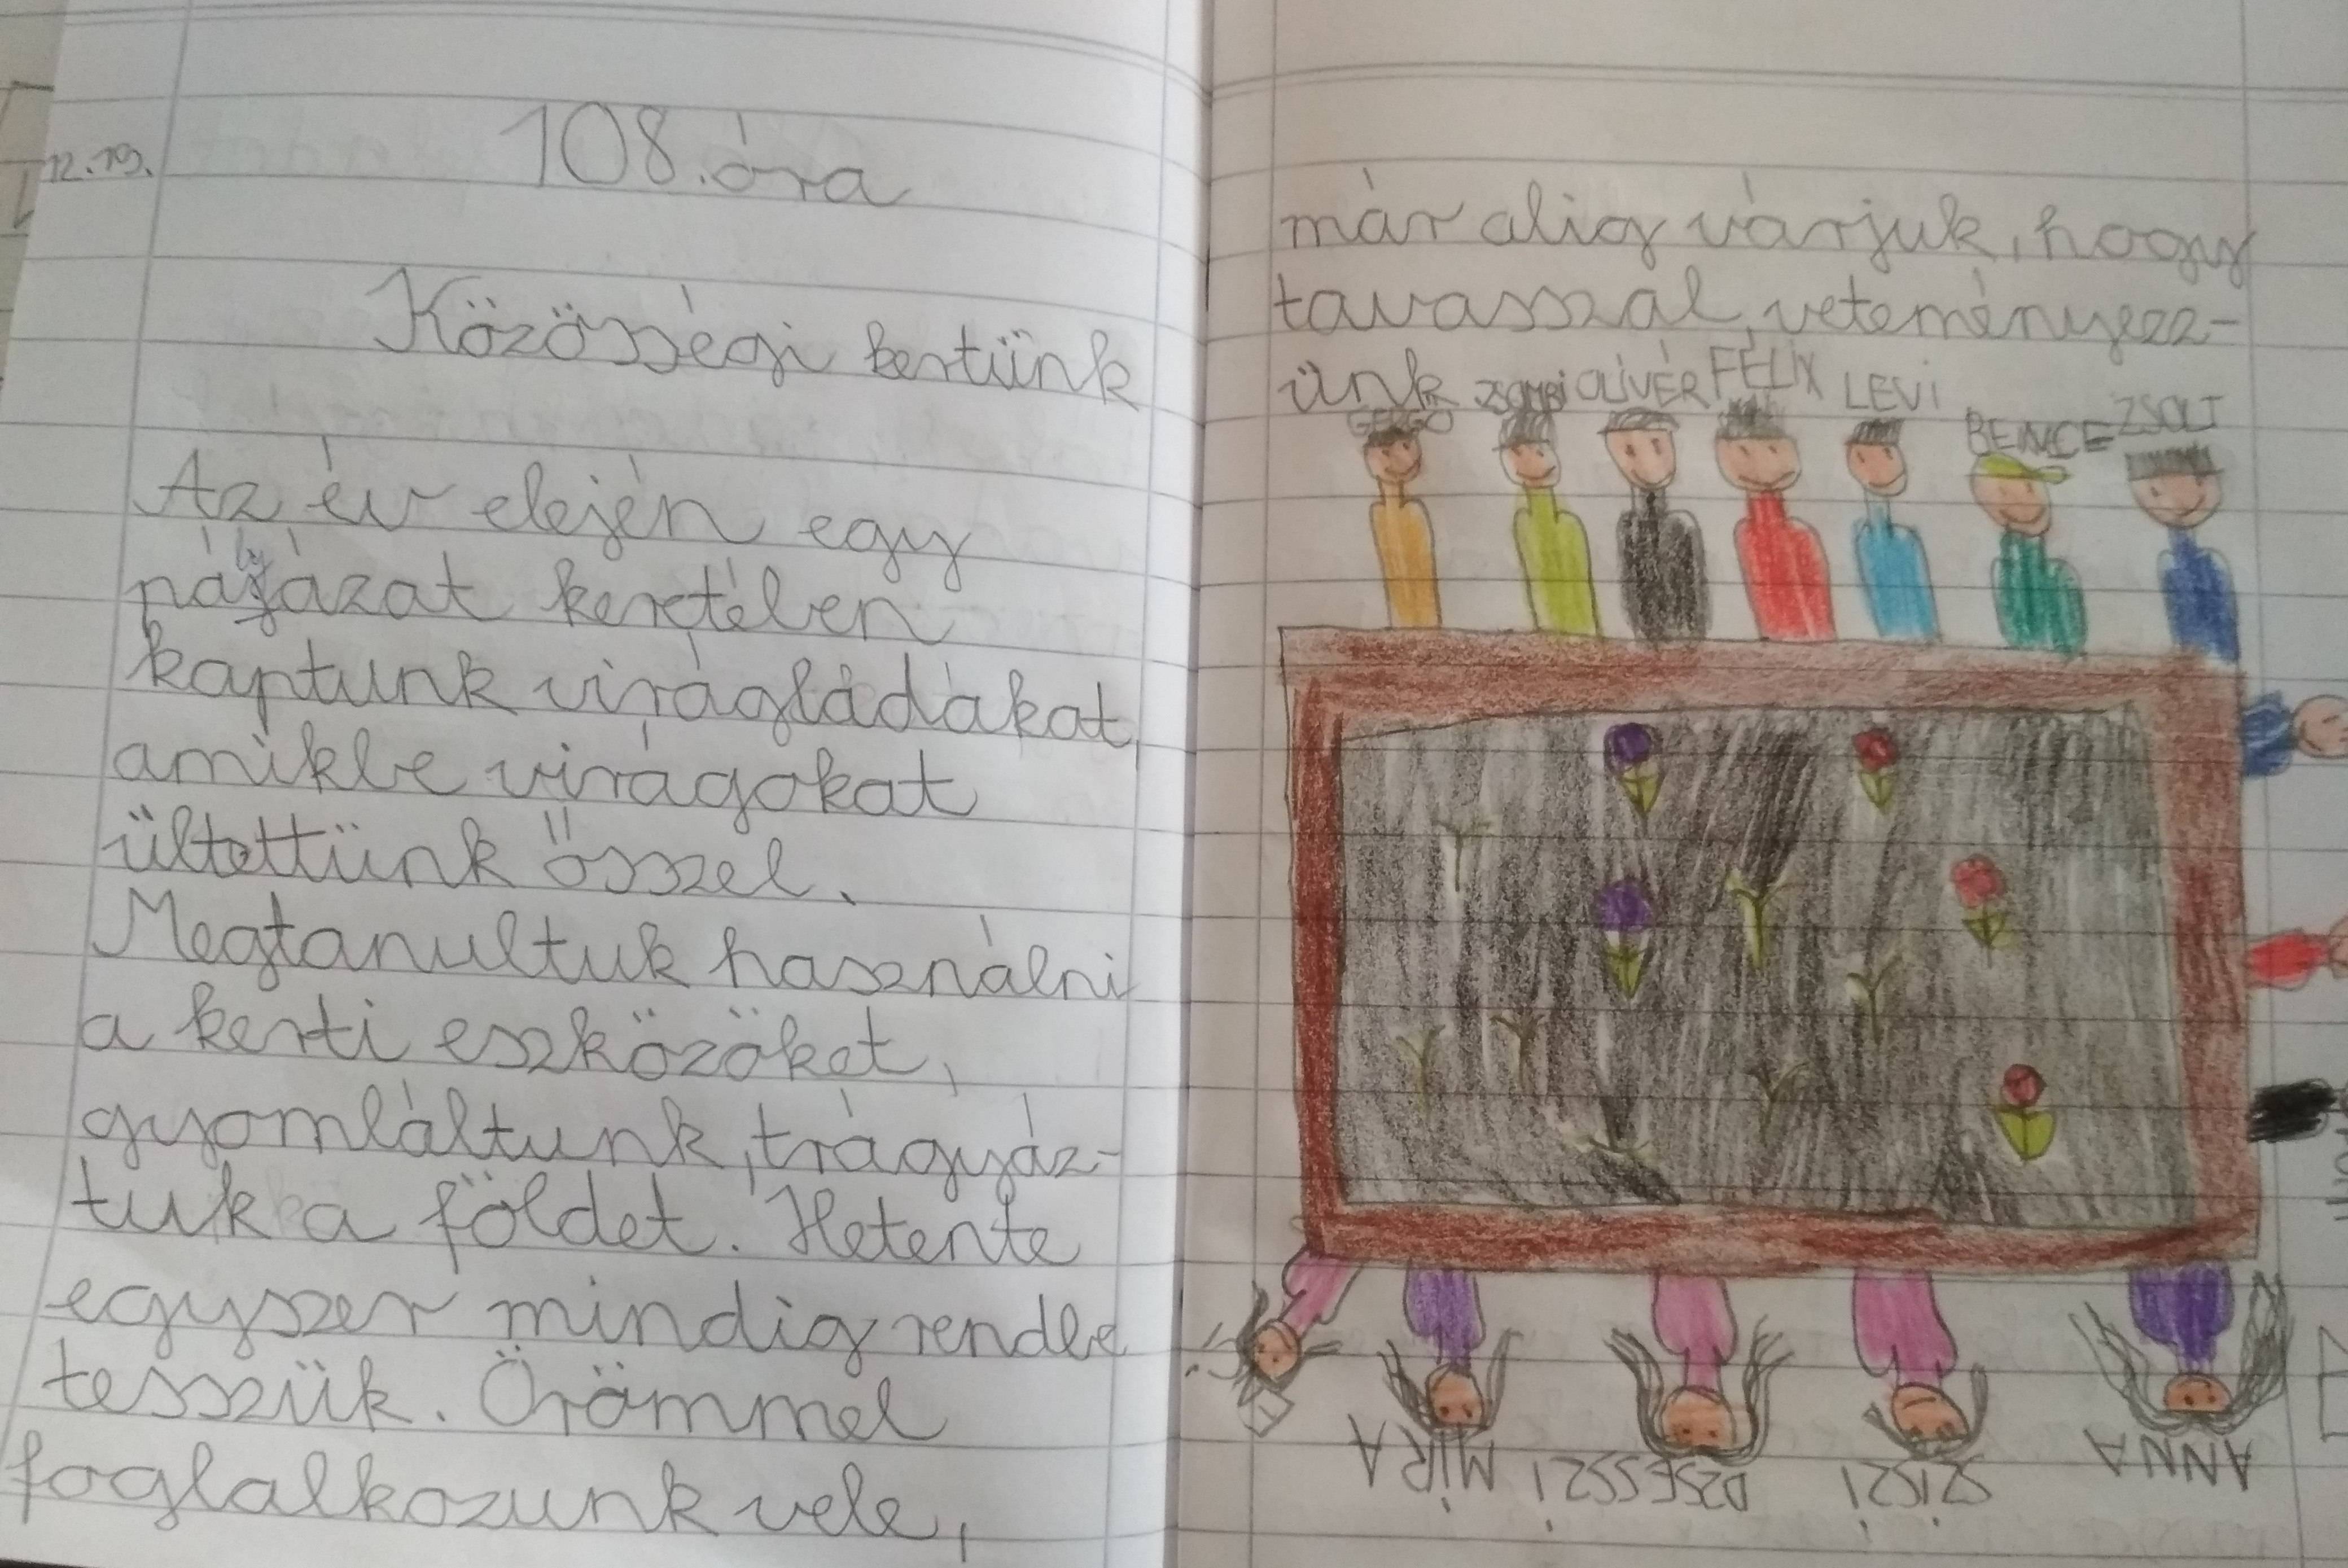 12.19.
108. óra
Közösségi kertünk
Az év elején egy
pályázat keretében
kaptunk virágládákat,
amikbe virágokat
ültettünk ősszel.
Megtanultuk használni
a kerti eszközöket,
gyomláltunk, trágyáz-
tuk a földet. Hetente
egyszer mindig rendbe
tesszük. Örömmel
foglalkozunk vele,
már alig várjuk, hogy
tavasszal veteményezz-
ünk
GERGŐ ZSOMBI OLIVÉR FÉLIX LEVI BENCE ZSOLT
MIRA DZSESSZI SZISZI ANNA